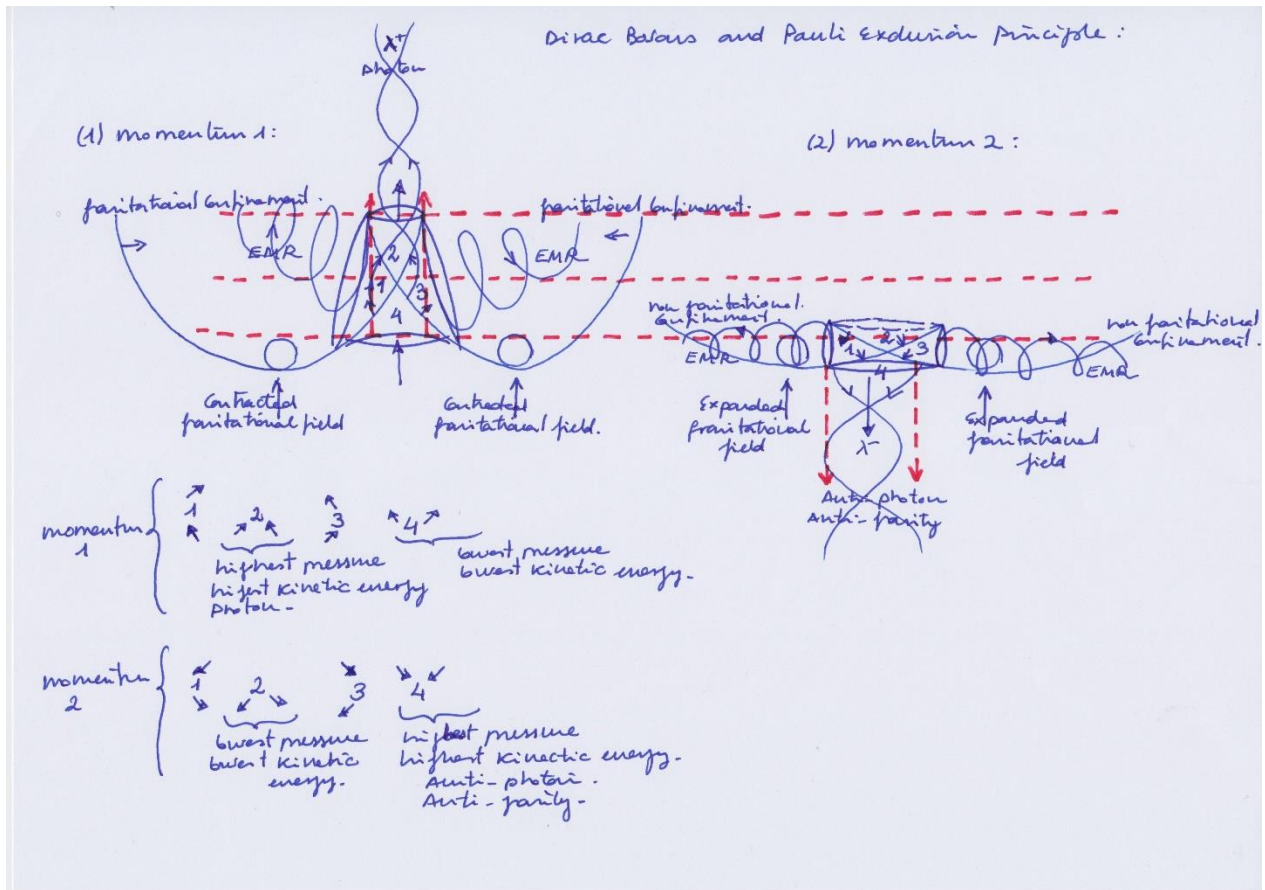 Dirac Bosons and Pauli Exclusion principle:
λ+
photon
(1) momentum 1:
(2) momentum 2:
gravitational confinement.
gravitational confinement.
EMR
EMR
2
1
3
4
non gravitational
confinement.
non gravitational
confinement.
EMR
1
2
3
4
EMR
Contracted
gravitational field
Contracted
gravitational field.
Expanded
gravitational
field
λ-
Expanded
gravitational
field
Anti-photon
Anti-parity
momentum
1
1
2
3
4
highest pressure
highest kinetic energy
photon-
lowest pressure
lowest kinetic energy.
momentum
2
1
2
3
4
lowest pressure
lowest kinetic
energy.
highest pressure
highest kinectic energy.
Aunti-photon.
Anti-parity-